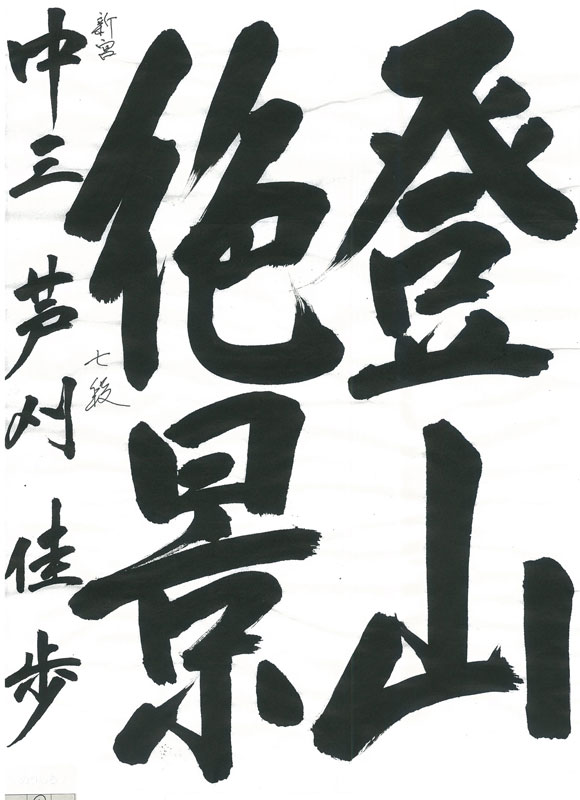 登山
絶景
新宮
七段
中三 芦刈 佳歩